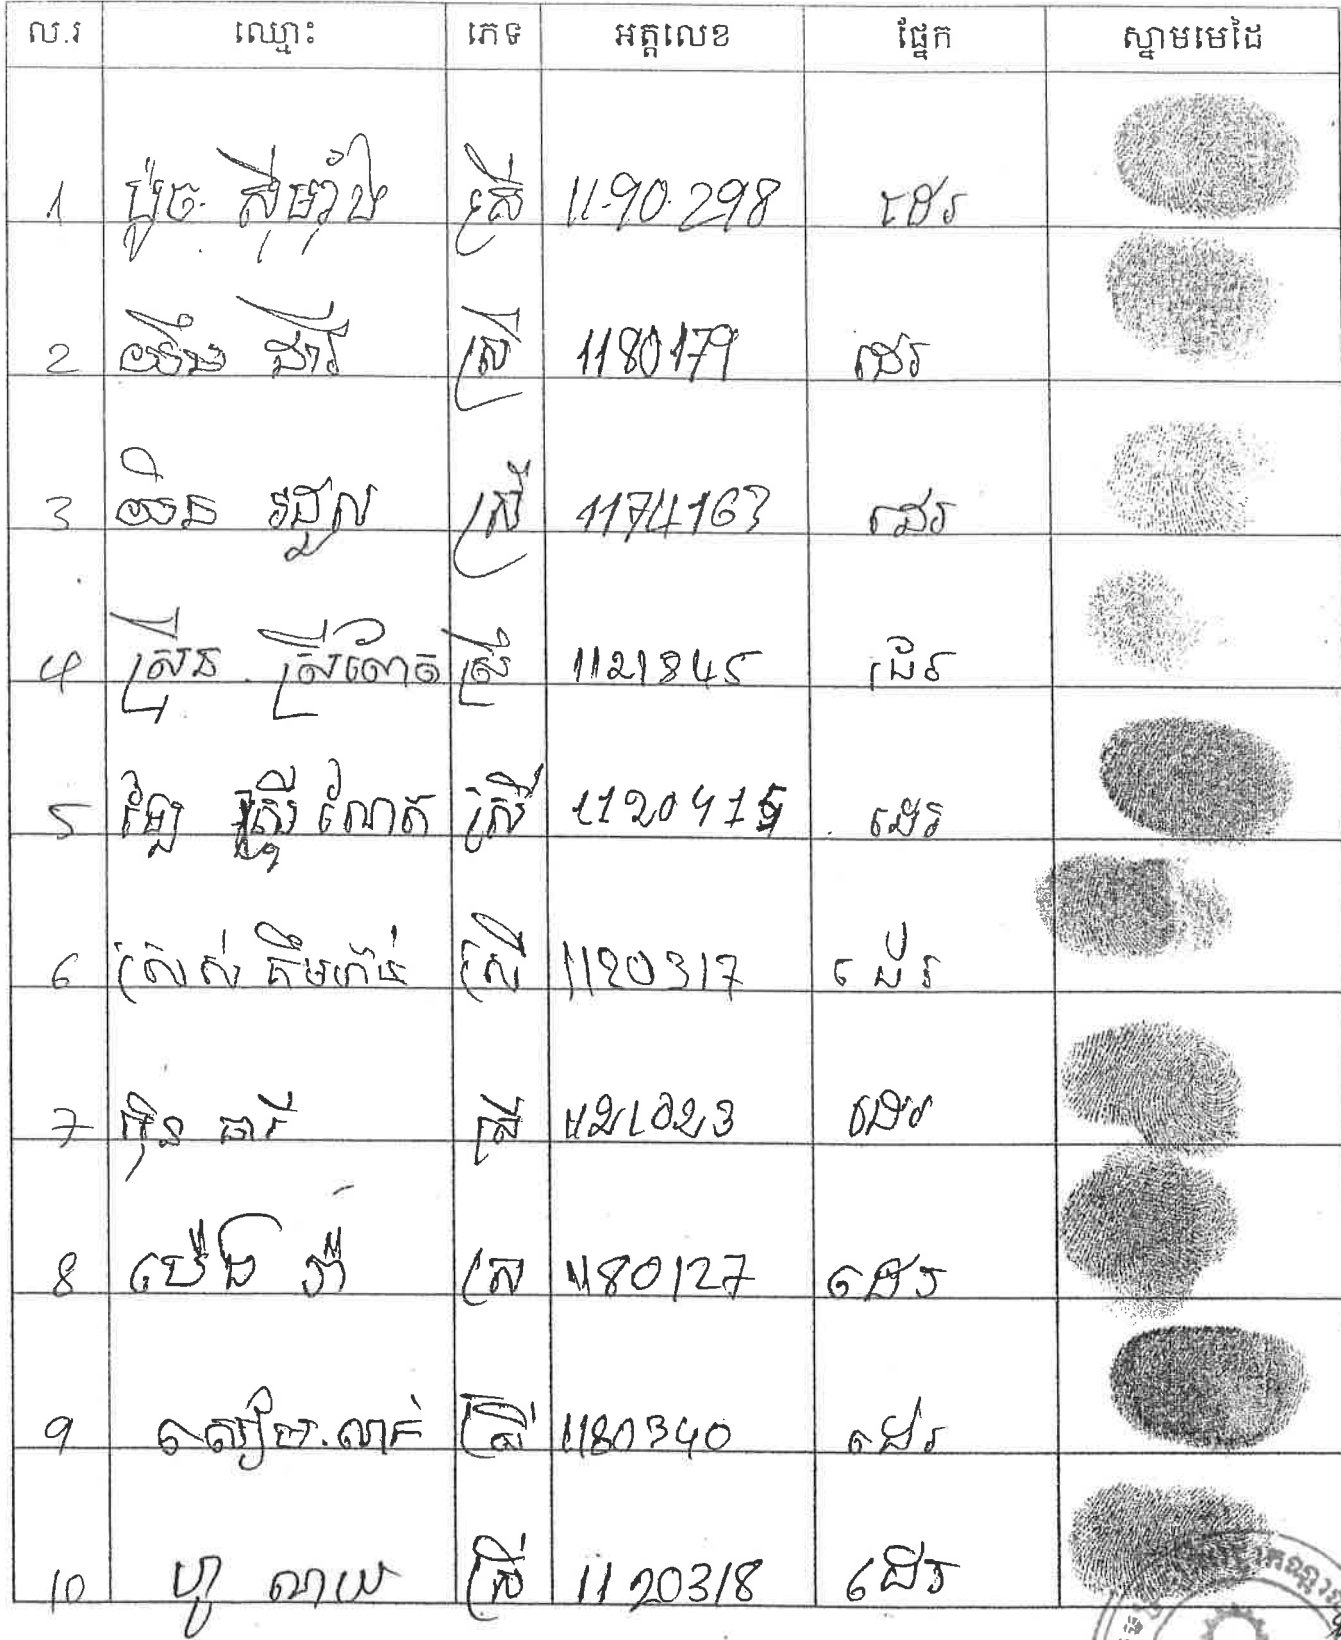 ល.រ ឈ្មោះ ភេទ អត្តលេខ ផ្នែក ស្នាមមេដៃ
1 ប៉ូច ស៊ីម៉ាំង ស្រី 11-90-298 ដេរ
2 យឹម ដារី ស្រី 1180179 ដេរ
3 យិន ស្រី 1174163 ដេរ
4 ស្រ៊ុន ស្រីពៅ ស្រី 1121845 ដេរ
5 ស្រី ណែត ស្រី 1120415 ដេរ
6 គឹមហន់ ស្រី 1120317 ដេរ
7 អ៊ិន ធារី ស្រី 1121023 ដេរ
8 ប៉េង រ៉ា ស្រី 1180127 ដេរ
9 លាក់ ស្រី 1180340 ដេរ
10 ហូ ណាយ ស្រី 1120318 ដេរ